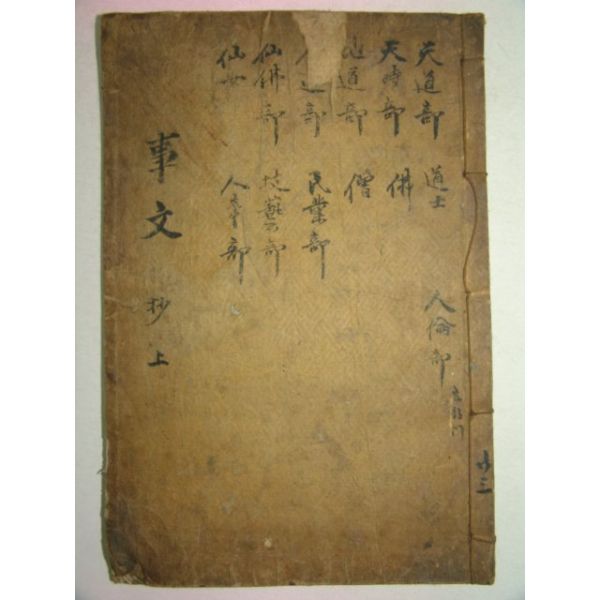 天道部 道士
天時部 佛
地道部 僧
部 民業部
仙佛部 技藝部
仙女 人事部
人倫部
事文 抄 上